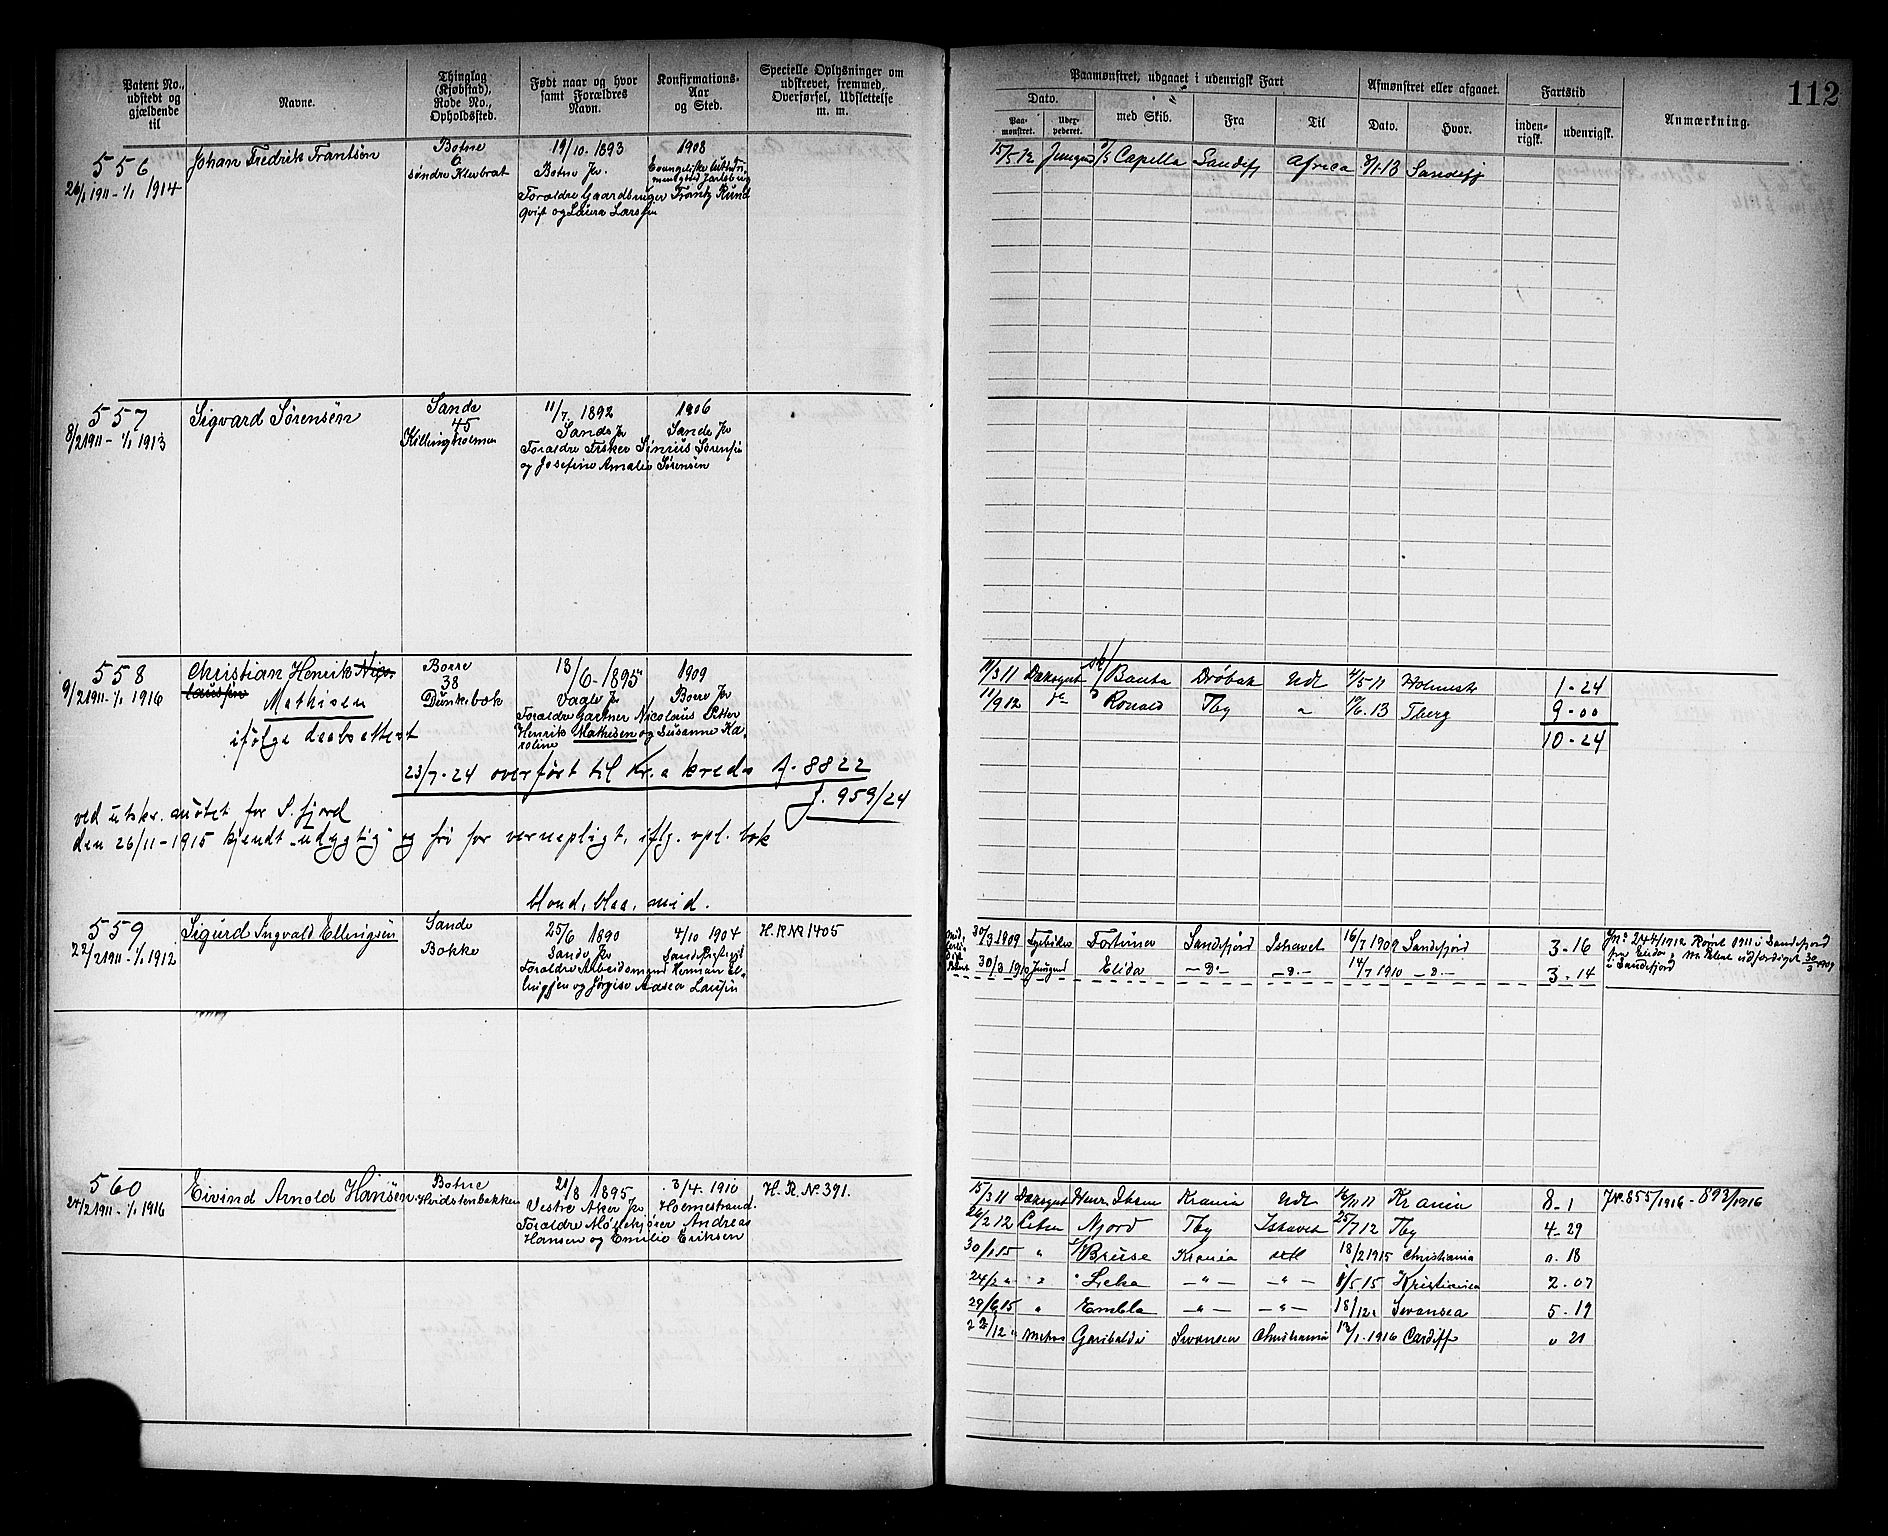 Patent No., udstedt og gjældende til
Navne.
Thinglag (Kjøbstad), Rode No., Opholdssted.
Født naar og hvor samt Forældres Navn.
Konfirmations-Aar og Sted.
Specielle Oplysninger om udskrevet, fremmed, Overførsel, Udslettelse m. m.
Paamønstret, udgaaet i udenrigsk Fart
Dato.
Paa-mønstret.
med Skib.
Fra
Til
Afmønstret eller afgaaet.
Dato.
Hvor.
Fartstid
inden-rigsk.
udenrigsk.
Anmærkning.
112
556
26/1 1911 - 1/1 1914
Johan Fredrik Frantsen
Botne
6
søndre Klevbrat
19/10. 1893
Botne Pr.
1908
Forældre Gaardbruger Frantz Rund
qvist og Laura Larssen
15/5 12 Jungm Capella Sandefj Africa 9/1 13 Sandefj
557
8/2 1911 - 1/1 1913
Sigvard Sørensen
Sande
45
Killingholmen
11/7. 1892
Sande Pr
1906
Sande Pr
Forældre Fisker Sørensen
og Josefine Amalie Sørensen
558
9/2 1911 - 1/1 1916
Christian Henrik Nico-
laussen
Mathisen
ifølge daabsattest
Borre
38
Dunkebæk
13/6 - 1895
Vaale Pr
1909
Borre Pr
Forældre Gartner Nicolaus Petter
Henrik Mathisen og Susanne Ka-
roline
23/7 - 24 overført til Kr.a kreds f. 8822
J. 959/24
ved utskr. møtet for S. fjord
den 26/11 - 1915 kjendt "udygtig" og fri for vernepligt, iflg. vpl. bok
11/3 11 Dæksgut Banta Drøbak Udl 4/5 11 Holmestr 1 - 24
11/9 12 do Ronald Tbg " 10/6. 13 Tberg 9 - 00
10 - 24
blond, blaa, mid.
559
22/2 1911 - 1/1 1912
Sigurd Ingvald Ellingsen
Sande
Bokke
25/6 1890
Sande Pr
4/10 1904
H. R. No 1405
Forældre Arbeidsmand Herman El-
lingsen og Jørgine Aasea Larssen
30/3 1909 Fortuna Sandefjord Ishavet 16/7 1909 Sandefjord 3 - 16
30/3 1910 Jungmd Elida - D. - - D. - 14/7 1910 - D. - 3 - 14
Jn: 244/1912 Rømt 1911 i Sandefjord
fra Elida, Ny Patent udfærdiget 30/3 1909
i Sandefjord
560
24/2 1911 - 1/1 1916
Eivind Arnold Hansen
Botne
Hvidstenbakken
21/8 1895
Vestre Aker Pr
3/4. 1910
Holmestrand.
H. R. No. 391.
Forældre Møllekjører Andreas
Hansen og Emilie Eriksen
15/3 11 Dæksgut Henr. Ibsen Krania Udl 16/11 11 Krania 8 - 1
26/2 12 Letm Njord Tbg Ishavet 25/7 12 Tbg 4 - 29
30/1 15 " Bruse Krania Udl 18/2 1915 Christiania " . 18
24/2 " " Leka - " - - " - 1/5. 15 Kristiania 2 - 07
29/6 15 " Embla - " - - " - 18/12 " Swansea 5 - 19
22/12 " Matros Garibaldi Swansea Christiania 12/1. 1916 Cardiff " 21
JNo. 855/1916 - 893/1916